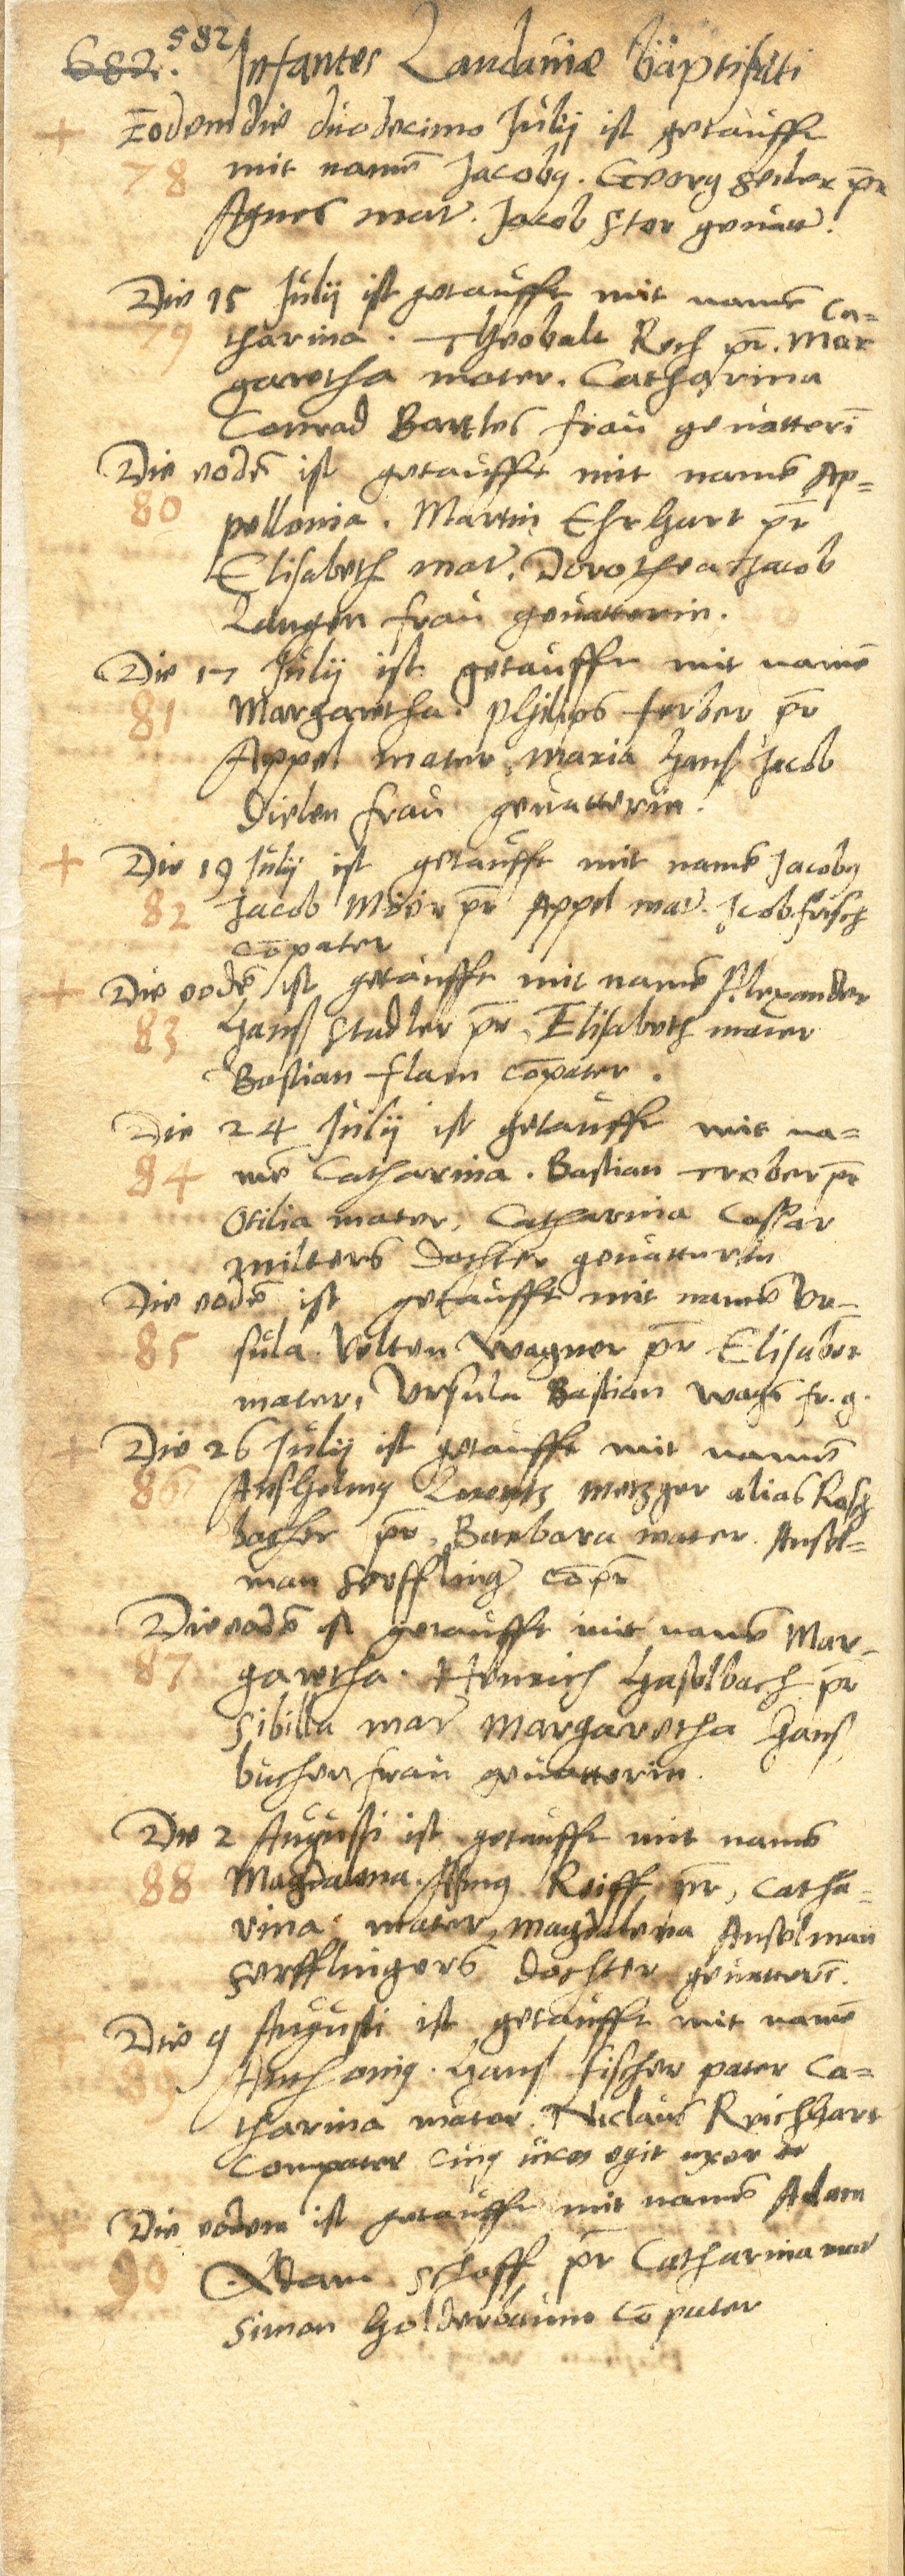 682. 582 Infantes Landaviæ baptisati
+ Eodem die duodecimo Julij ist getaufft
78 mit namē Jacobꝰ. Georg Seiler pr̄
Agnes mat̄. Jacob Stor gevatt̄.
Die 15 Julij ist getaufft mit namē Ca=
79 tharina. Theobalt Rech pr̄. Mar
garetha mater. Catharina
Conrad Bartles frau gevatterī
Die eodē ist getaufft mit namē Ap=
80 pellonia. Martin Ehrhart pr̄
Elisabeth mat̄. Dorothea Jacob
Langen frau gevatterin.
Die 17 Julij ist getaufft mit namē
81 Margaretha. Philips Ferber pr̄
Appel mater, Maria Hans Jacob
Dielen frau gevatterin.
+ Die 19 Julij ist getaufft mit namē Jacobꝰ
82 Jacob pr̄ Appel mat̄. Jcob Frisch
cōpater
+ Die eodē ist getaufft mit namē Alexander
83 Hans Stadler pr̄, Elisabeth mater
Bastian Flam cōpater.
Die 24 Julij ist getaufft mit na=
84 mē Catharina. Bastian Treber pr̄
Otilia mater, Catharina Caspar
Dochter gevatterin
Die eodē ist getaufft mit namē Vr=
85 sula. Velten Wagner pr̄ Elisabet
mater, Vrsula Bastian Wags fr. g.
+ Die 26 Julij ist getaufft mit namē
86 Anshelmꝰ Lorentz Metzger alias Rosch
bacher pr̄, Barbara mater. Ansel=
man Serfflinḡ cōpr̄
Die eodē ist getaufft mit namē Mar=
87 garetha. Henrich Haselbach pr̄
Sibilla mat̄ Margaretha Hans
bucher frau gevatterin.
Die 2 Augusti ist getaufft mit namē
88 Magdalena. Reiff pr̄, Catha=
rina mater, Magdalena Anselman
Serfflingers dochter gevatterī.
Die 9 Augusti ist getaufft mit namē
89 Anthoniꝰ. Hans Fischer pater Ca=
tharina mater. Niclaus Reichhart
Compater cuiꝰ vices egit uxor
Die eodem ist getaufft mit namē Adam
90 Adam Schaff pr̄ Catharina mat̄
Simon Holderbaum cō pater